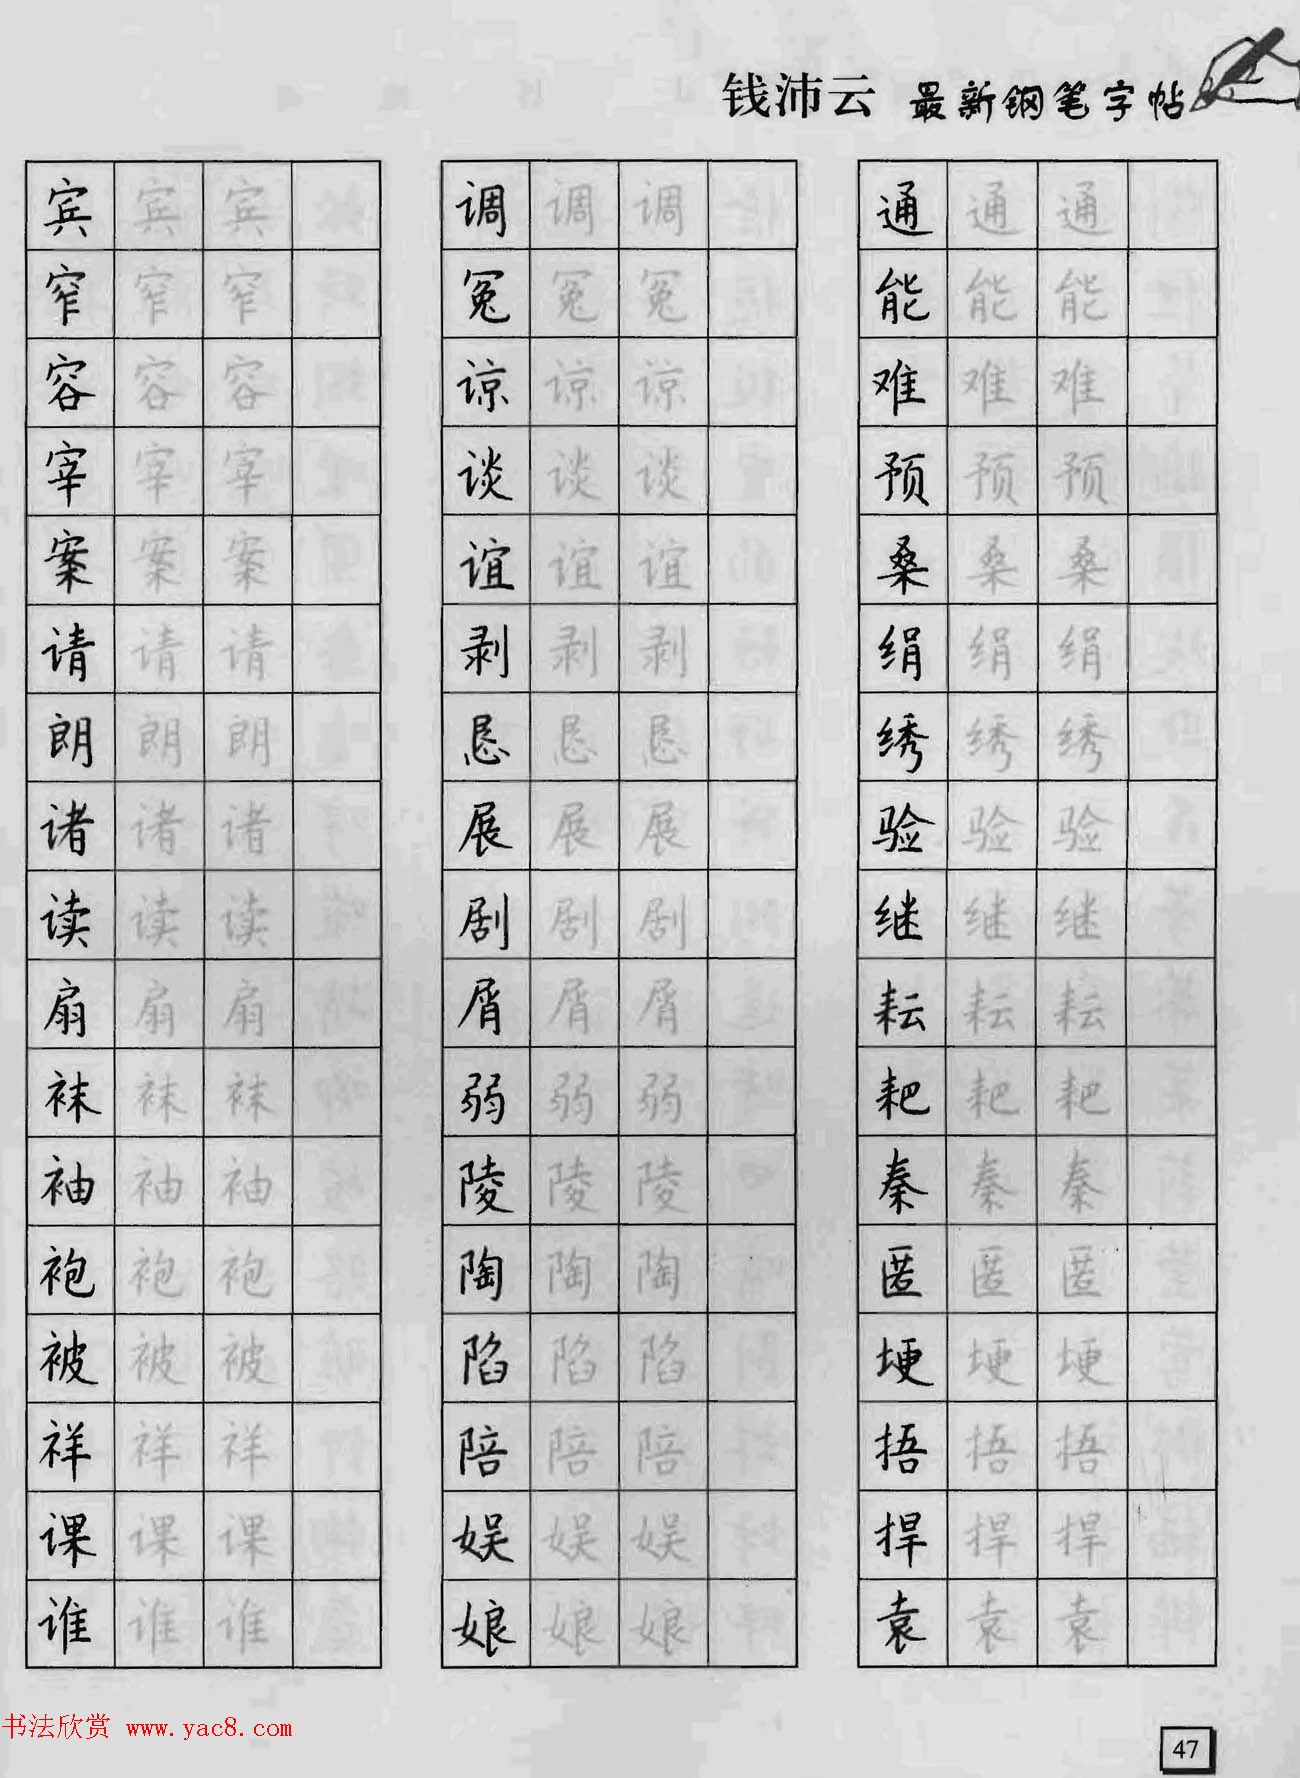 钱沛云 最新钢笔字帖
宾 宾 宾 调 调 调 通 通 通
窄 窄 窄 冤 冤 冤 能 能 能
容 容 容 谅 谅 谅 难 难 难
宰 宰 宰 谈 谈 谈 预 预 预
案 案 案 谊 谊 谊 桑 桑 桑
请 请 请 剥 剥 剥 绢 绢 绢
朗 朗 朗 恳 恳 恳 绣 绣 绣
诸 诸 诸 展 展 展 验 验 验
读 读 读 剧 剧 剧 继 继 继
扇 扇 扇 屑 屑 屑 耘 耘 耘
袜 袜 袜 弱 弱 弱 耙 耙 耙
袖 袖 袖 陵 陵 陵 秦 秦 秦
袍 袍 袍 陶 陶 陶 匿 匿 匿
被 被 被 陷 陷 陷 埂 埂 埂
祥 祥 祥 陪 陪 陪 捂 捂 捂
课 课 课 娱 娱 娱 捍 捍 捍
谁 谁 谁 娘 娘 娘 袁 袁 袁
书法欣赏 www.yac8.com
47